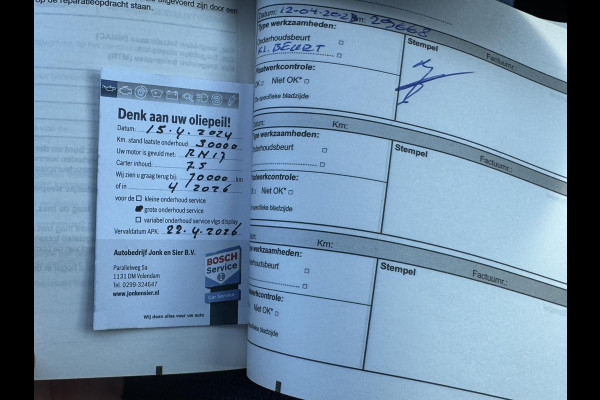 uitgevoerd zijn door een
op de reparatieopdracht staan.
Denk aan uw oliepeil!
Datum: 15.4.2024
Km. stand laatste onderhoud: 30000
Uw motor is gevuld met: RN17
Carter inhoud: 7.5
Wij zien u graag terug bij: 70000 km
of in 4/2026
voor de □ kleine onderhoud service
grote onderhoud service
□ variabel onderhoud service vlgs display
Vervaldatum APK: 22.4.2026
Autobedrijf Jonk en Sier B.V.
Parallelweg 5a
1131 DM Volendam
Tel. 0299-324647
www.jonkensier.nl
BOSCH
Service
Car Service
Wij doen alles voor uw auto
Datum: 12-04-2023 Km: 29668
Type werkzaamheden:
Onderhoudsbeurt □
KL. BEURT □
Stempel
Factuurnr.:
Maatwerkcontrole:
OK □ Niet OK* □
specifieke bladzijde
Datum: Km:
Type werkzaamheden:
Onderhoudsbeurt □
Stempel
Factuurnr.:
Niet OK* □
specifieke bladzijde
Km:
werkzaamheden:
Stempel
Factuurnr.:
Niet OK* □
bladzijde